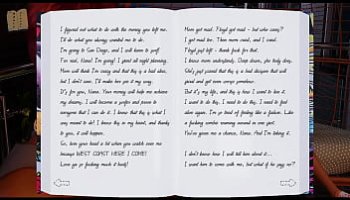 I figured out what to do with the money you left me.
I'll do what you always wanted me to do.
I'm going to San Diego, and I will learn to surf!
For real, Nana! I'm going! I spent all night planning.
Mom will think I'm crazy and that this is a bad idea,
but I don't care. I'll make her pay it my way.
It's for you, Nana. Your money will help me achieve
my dreams. I will become a surfer and prove to
everyone that I can do it. I know that this is what I
was meant to do! I know this in my heart, and thanks
to you, it will happen.
So, turn your head a bit when you watch over me
because WEST COAST HERE I COME!
Love you so fucking much it hurts!
Mom got mad. They got mad - but who cares?
I got mad too. Then mom cried, and I cried.
They just left - thank fuck for that.
I know mom understands. Deep down, she truly does.
She's just pissed that this is a last designs that will
good and get even corny somehow.
But it's my life, and this is how I want to live it.
I want to do this. I need to do this. I need to feel
alive again. I'm so tired of feeling like a failure. Like
a fucking zombie running around in one spot.
You've given me a chance, Nana. And I'm taking it.
I don't know how I will tell him about it...
I want him to come with me, but what if he says no?